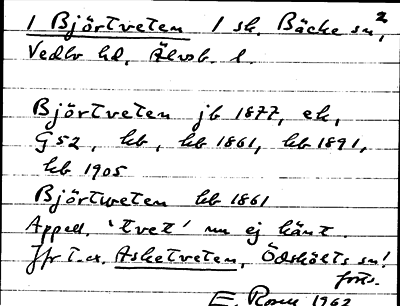 1 Björtveten 1 sk. Bäcke sn,
2
Vedbo hd, Älvsb. l.
Björtveten jb 1877, ek,
G52, kb, kb 1861, kb 1891,
kb 1905
Björtweten kb 1861
Appell. 'tvet' nu ej känt.
Jfr t.ex. Asketveten, Ödskölts sn!
forts.
E. Rosen 1962